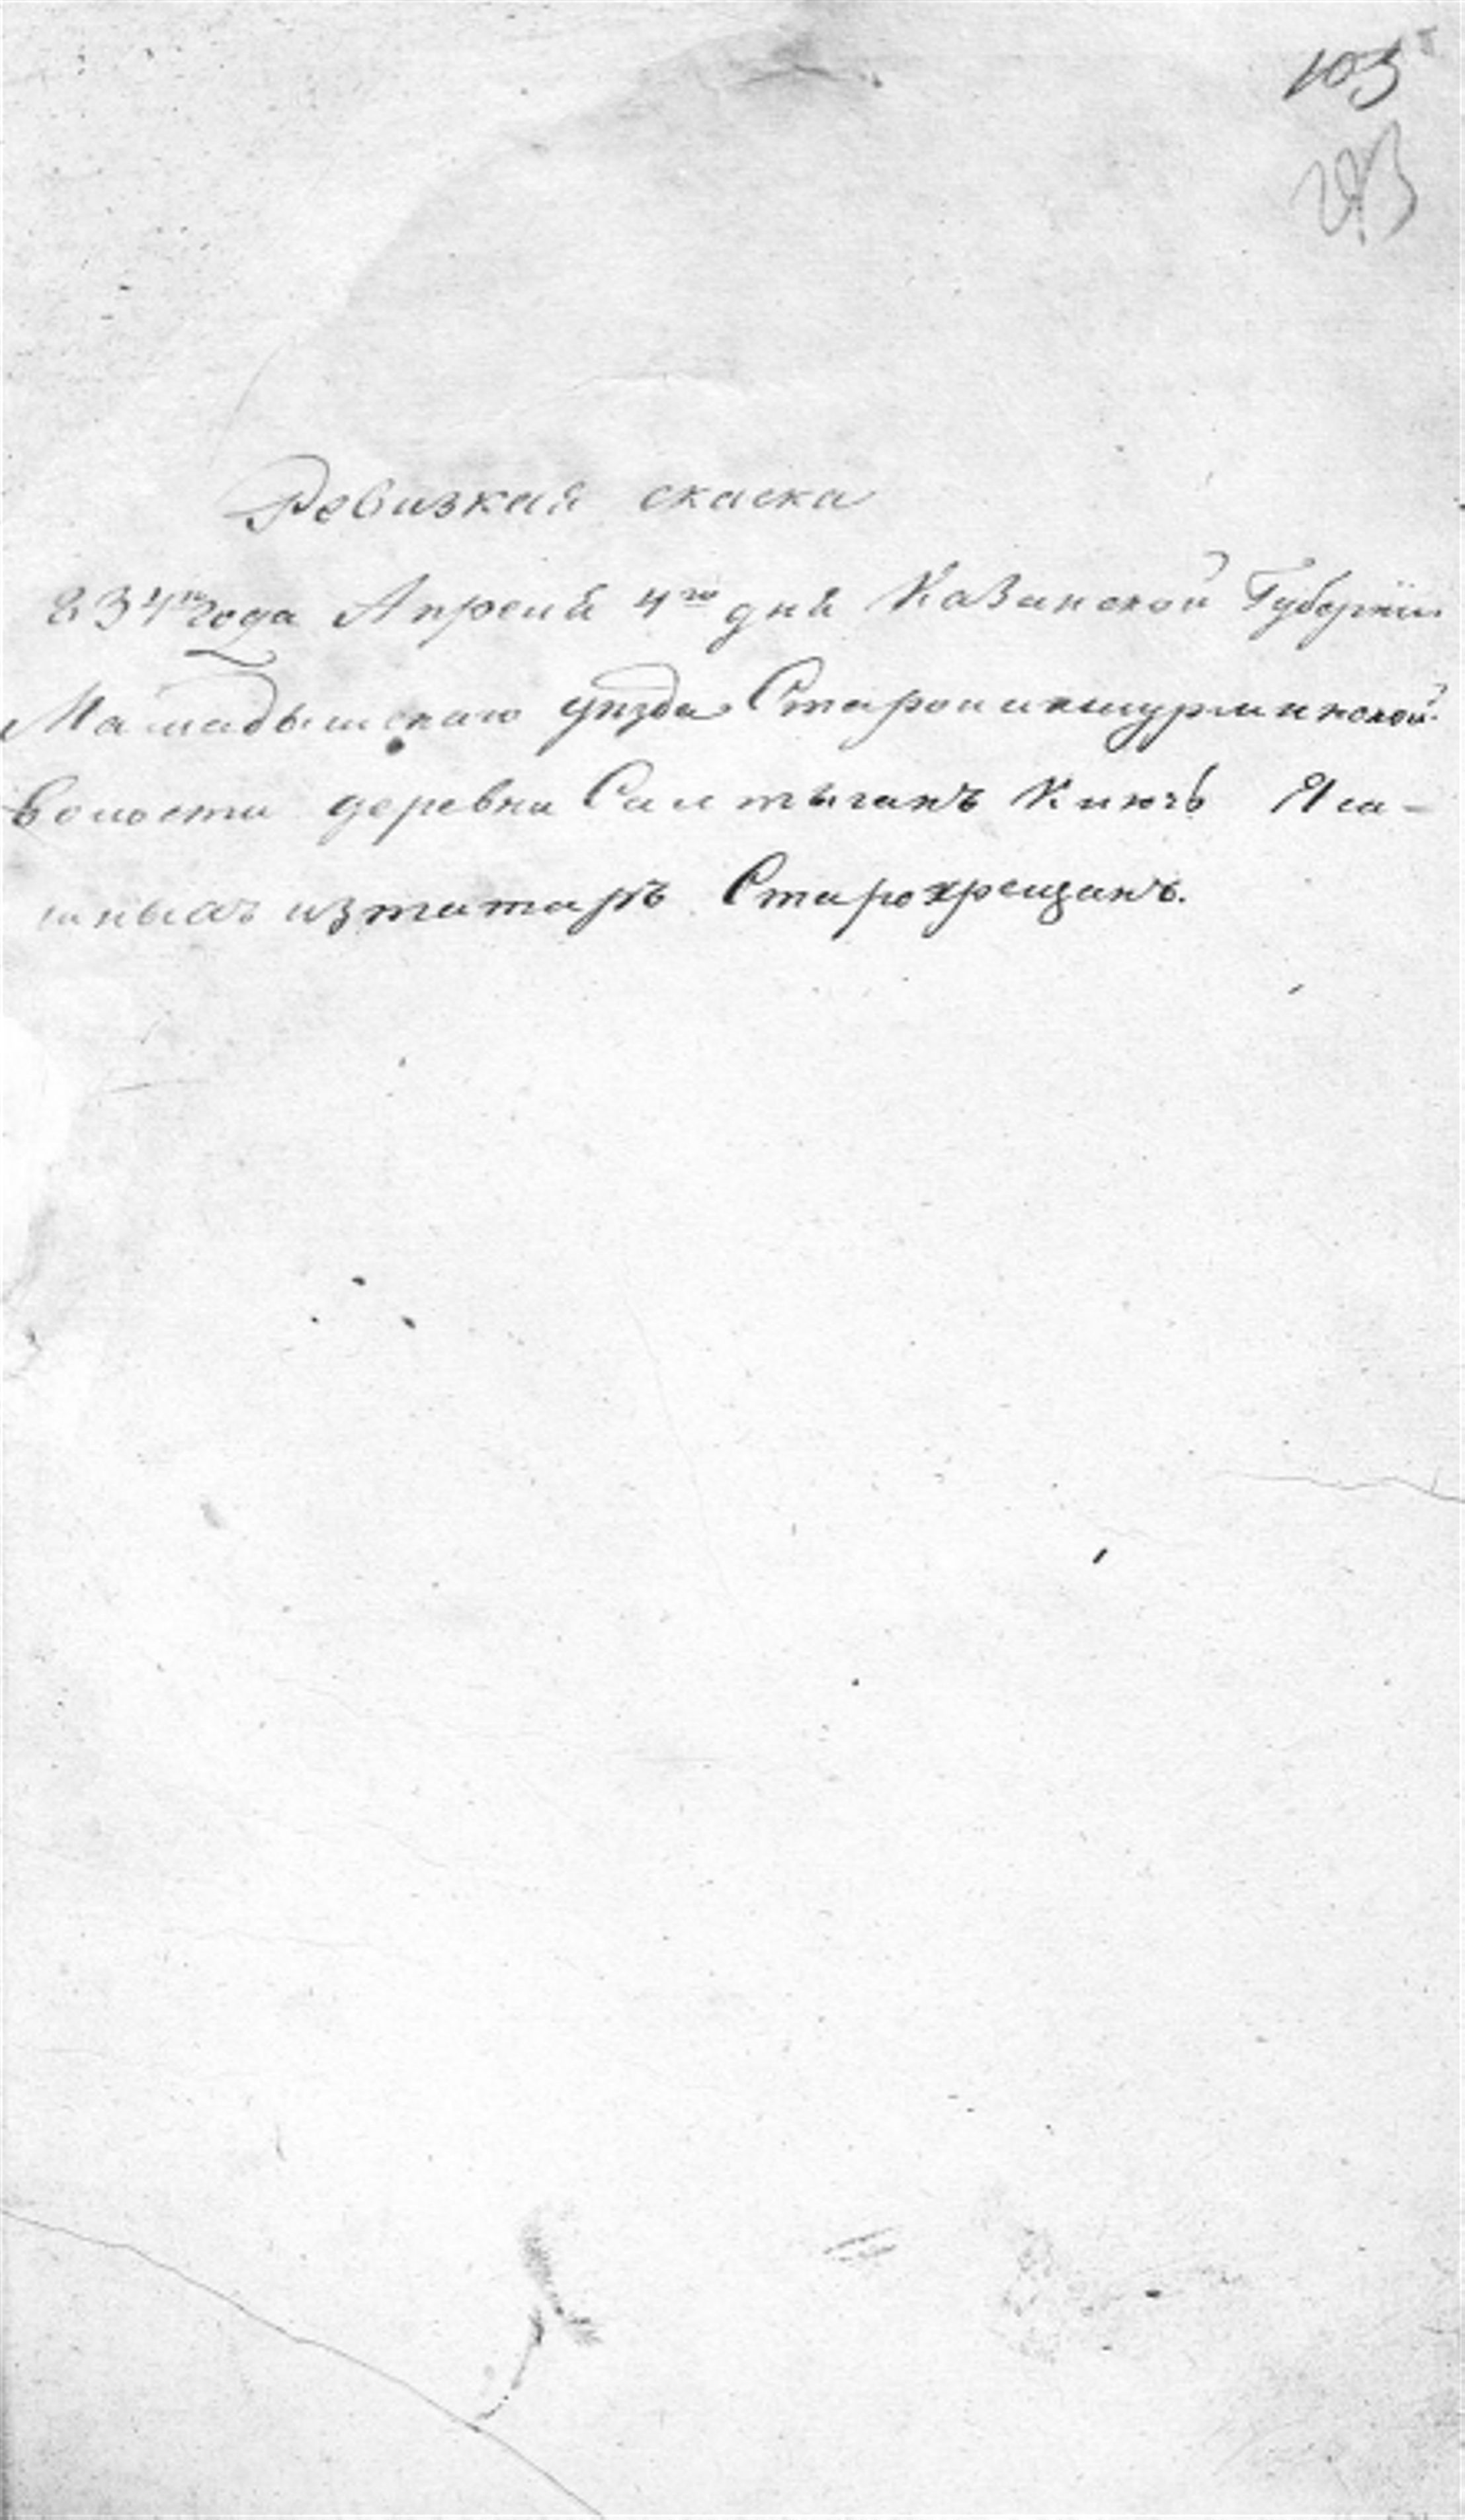 105
Ревизкая скаска
834го года Апреля 4го дня Казанской Губернiи
Мамадышскаго уезда Староикшурминской
Волости деревни Салтыганъ Ключь Яса-
шныхъ изтатаръ Старокрещанъ.